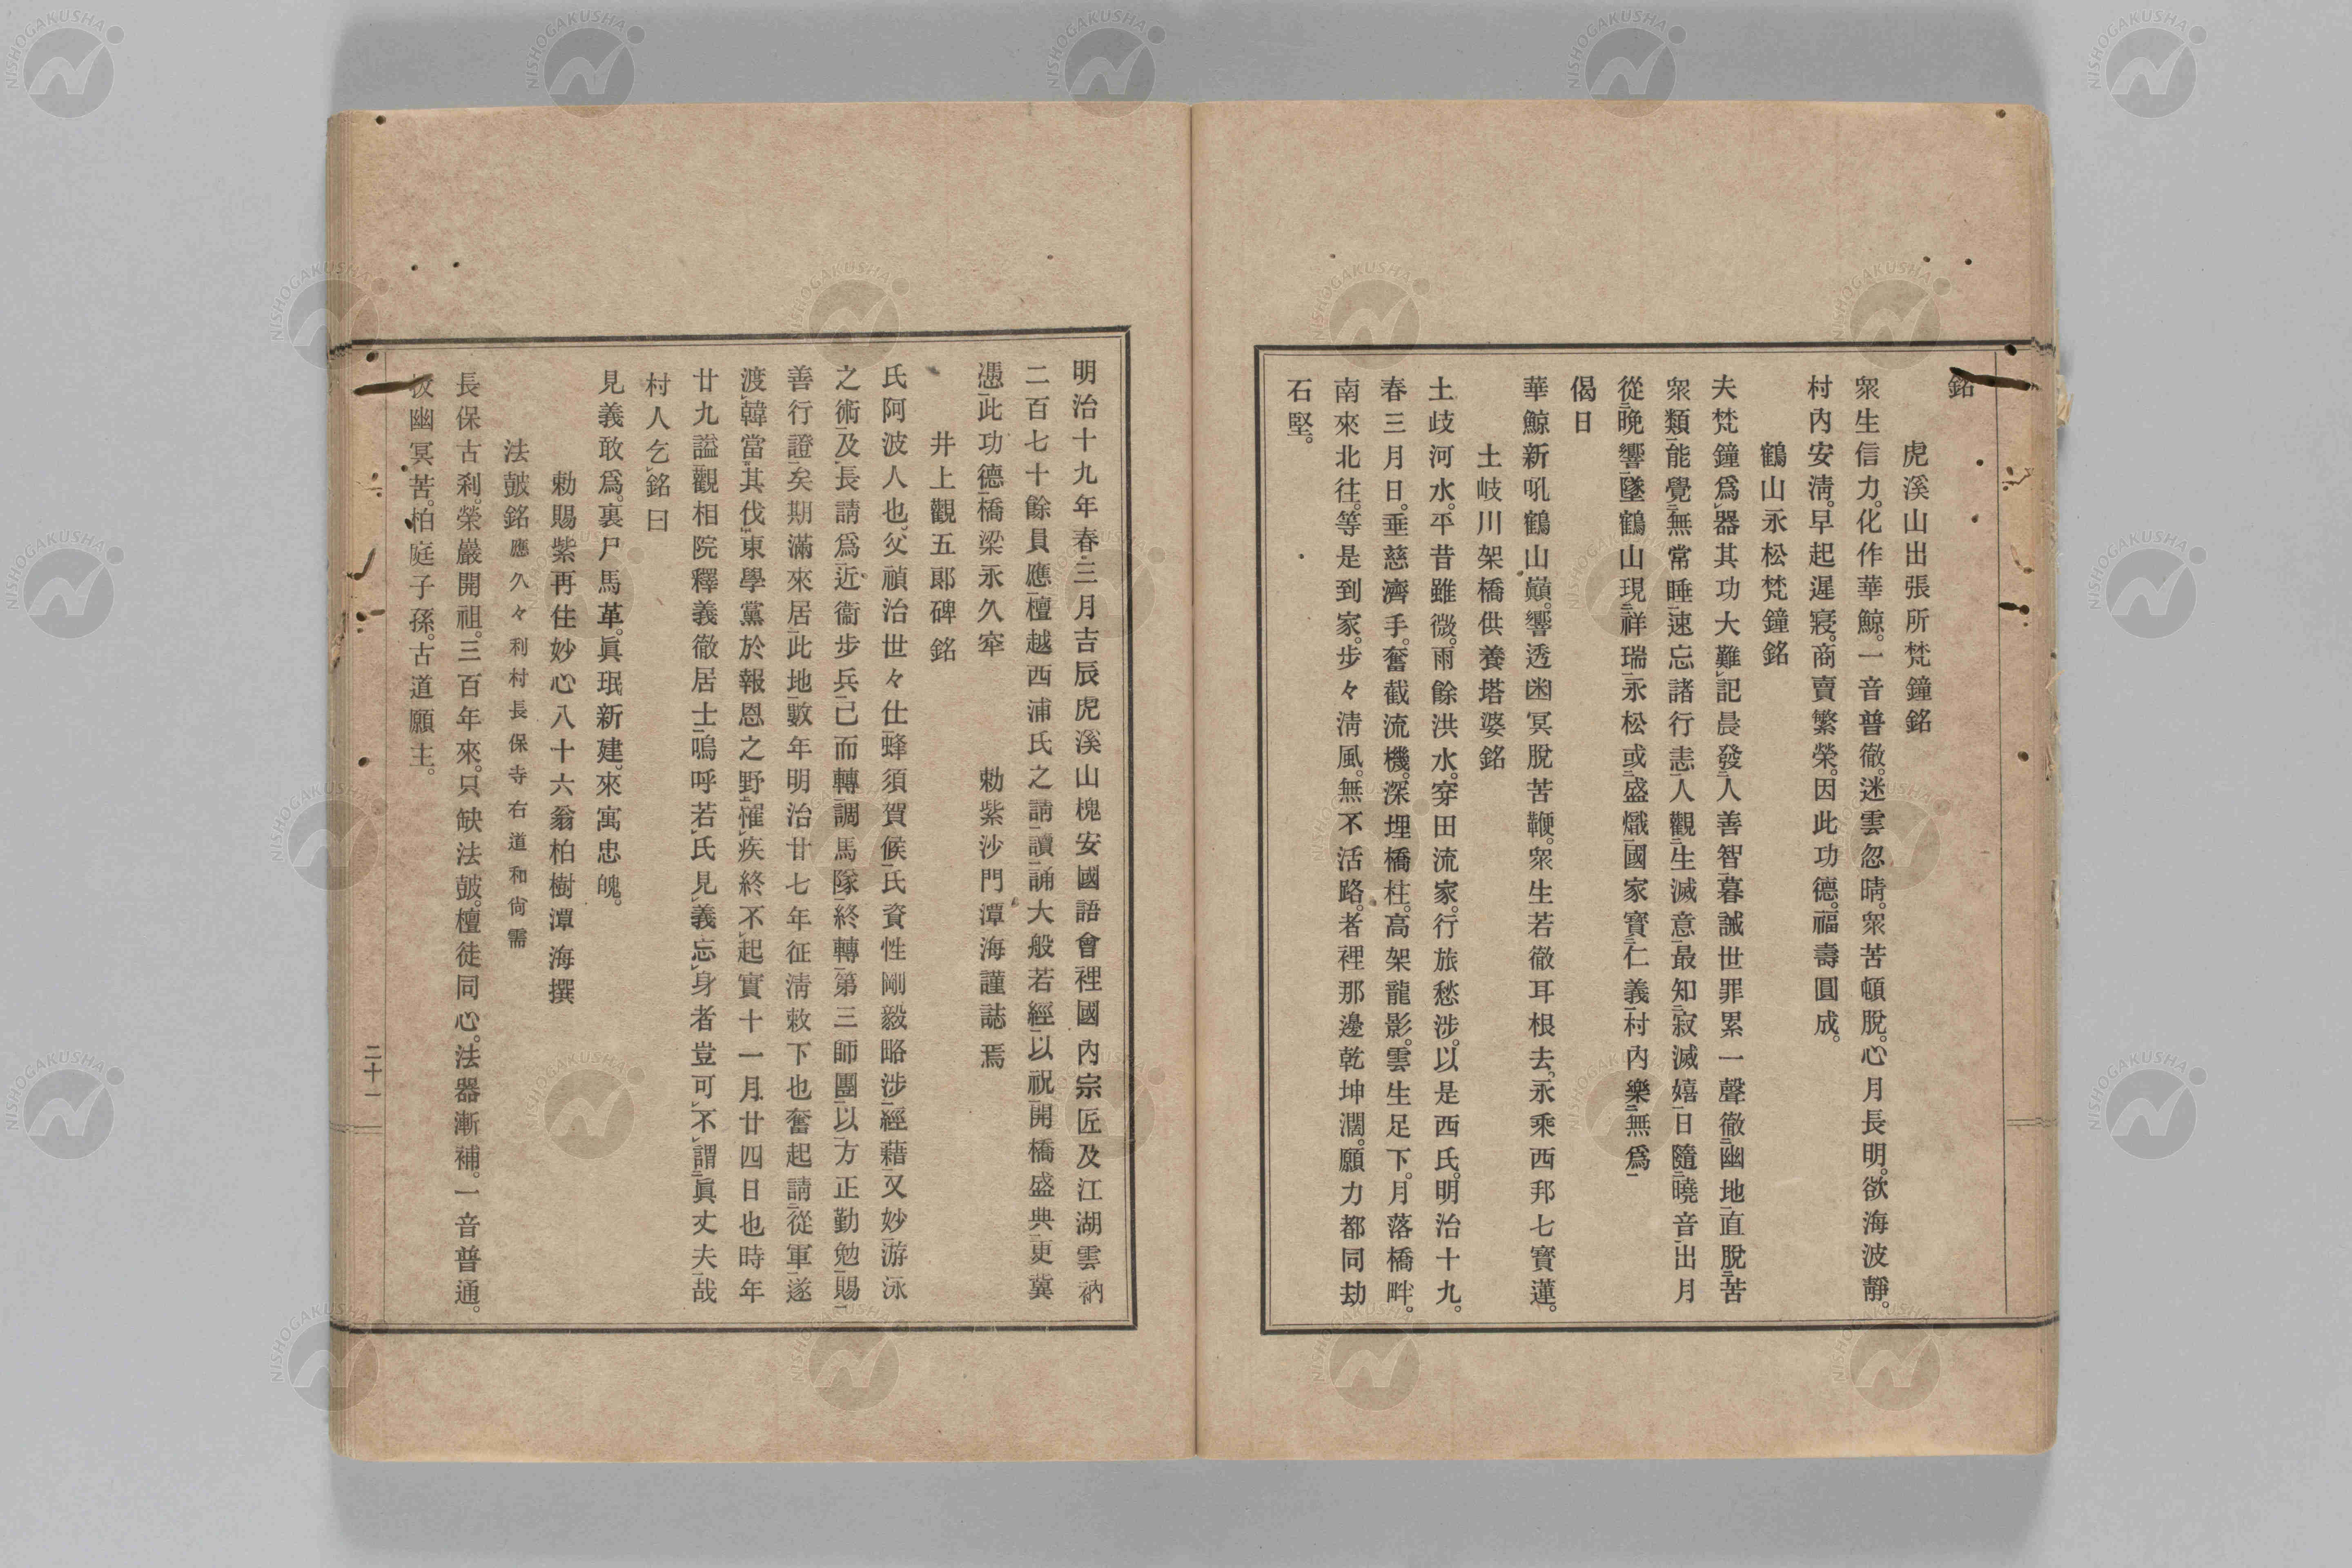 銘
虎溪山出張所梵鐘銘
衆生信力。化作華鯨。一音普徹。迷雲忽晴。衆苦頓脫。心月長明。欲海波靜。
村内安淸。早起遲寢。商賣繁榮。因此功德。福壽圓成。
鶴山永松梵鐘銘
夫梵鐘爲レ器其功大難レ記晨發二人善智一暮誠世罪累一聲徹二幽地一直脫二苦
衆類一能覺二無常睡一速忘諸行恚一人觀二生滅意一最知二寂滅嬉一日隨二曉音一出月
從二晩響一墜鶴山現二祥瑞一永松或二盛熾一國家寶二仁義一村内樂二無爲一
偈曰
華鯨新吼鶴山巓。響透幽冥脫苦鞭。衆生若徹耳根去、永乘西邦七寶蓮。
土岐川架橋供養塔婆銘
土歧河水。平昔雖微。雨餘洪水。穿田流家。行旅愁涉。以是西氏。明治十九。
春三月日。垂慈濟手。奮截流機。深埋橋柱。高架龍影。雲生足下。月落橋畔。
南來北往。等是到家。步々淸風。無不活路。者裡那邊乾坤濶。願力都同劫
石堅。
明治十九年春三月吉辰虎溪山槐安國語會裡國内宗匠及江湖雲衲
二百七十餘員應二檀越西浦氏之請一讀二誦大般若經一以祝二開橋盛典一更冀
憑二此功德一橋梁永久牢
勅紫沙門潭海謹誌焉
井上觀五郎碑銘
氏阿波人也、父禎治世々仕二蜂須賀候一氏資性剛毅略涉二經藉一又妙二游泳
之術一及レ長請爲二近衞步兵一已而轉二調馬隊一終轉二第三師團一以二方正勤勉一賜二
善行證一矣期滿來居二此地一數年明治廿七年征淸敕下也奮起請二從軍一遂
渡レ韓當三其伐二東學黨於報恩之野一罹レ疾終不レ起實十一月廿四日也時年
廿九謚二觀相院釋義徹居士一嗚呼若レ氏見レ義忘レ身者豈可レ不レ謂二眞丈夫一哉
村人乞レ銘曰
見義敢爲。裏尸馬革。眞珉新建。來寓忠魄。
勅賜紫再住妙心八十六翁柏樹潭海撰
法皷銘應久々利村長保寺右道和尙需
長保古刹。榮嚴開祖。三百年來。只缺法皷。檀徒同心。法器漸補。一音普通。
拔幽冥苦。柏庭子孫。古道願主。
二十一